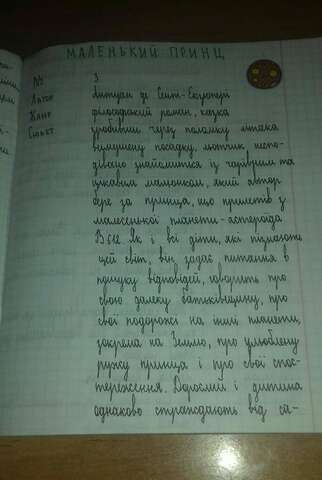 МАЛЕНЬКИЙ ПРИНЦ
№ 3
Автор Антуан де Сент-Екзюпері
Жанр Філософський роман, казка
Сюжет Зробивши через поломку літака
вимушену посадку, льотчик неспо-
дівано знайомиться із чарівним та
цікавим малюнком, який автор
бере за принца, що прилетів з
малесенької планети-астероїда
В 612. Як і всі діти, які пізнають
цей світ, він задає питання в
пошуку відповідей, говорить про
свою далеку батьківщину, про
свої подорожі на інші планети,
зокрема на Землю, про улюблену
ружу принца і про свої спос-
тереження. Дорослий і дитина
однаково страждають від са-